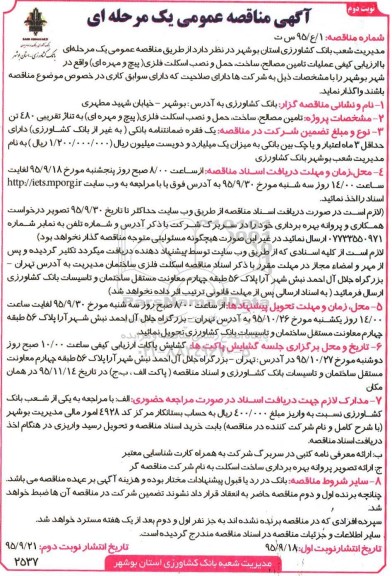 نوبت دوم
آگهی مناقصه عمومی یک مرحله ای
بانک کشاورزی استان بوشهر
شماره مناقصه: ۱/ع/۹۵ س ت
مدیریت شعب بانک کشاورزی استان بوشهر در نظر دارد از طریق مناقصه عمومی یک مرحله‌ای
با ارزیابی کیفی عملیات تامین مصالح، ساخت، حمل و نصب اسکلت فلزی (پیچ و مهره ای) واقع در
شهر بوشهر را با مشخصات ذیل به شرکت ها دارای صلاحیت که دارای سوابق کاری در خصوص موضوع مناقصه
باشند واگذار نماید.
۱- نام و نشانی مناقصه گزار: بانک کشاورزی به آدرس: بوشهر – خیابان شهید مطهری
۲- مشخصات پروژه: تامین مصالح، ساخت، حمل و نصب اسکلت فلزی (پیچ و مهره ای) به تناژ تقریبی ۴۸۰ تن
۳- نوع و مبلغ تضمین شرکت در مناقصه: یک فقره ضمانتنامه بانکی (به غیر از بانک کشاورزی) دارای
حداقل ۳ ماه اعتبار و یا چک بین بانکی به میزان یک میلیارد و دویست میلیون ریال (۱/۲۰۰/۰۰۰/۰۰۰ ریال) به نام
مدیریت شعب بوشهر بانک کشاورزی
۴- محل، زمان و مهلت دریافت اسناد مناقصه: از ساعت ۸/۰۰ صبح روز پنجشنبه مورخ ۹۵/۹/۱۸ لغایت
ساعت ۱۴/۰۰ روز سه شنبه مورخ ۹۵/۹/۳۰ به آدرس فوق یا با مراجعه به وب سایت http://iets.mporg.ir
اسناد را اخذ نمائید.
(لازم است در صورت دریافت اسناد مناقصه از طریق وب سایت حداکثر تا تاریخ ۹۵/۹/۳۰ تصویر درخواست
همکاری و پروانه بهره برداری خود را در سربرگ شرکت با ذکر آدرس و شماره تلفن به نمابر شماره
۰۷۷۳۳۵۵۰۹۷۱ ارسال نمائید در غیر این صورت هیچگونه مسئولیتی متوجه مناقصه گذار نخواهد بود)
لازم است از کلیه اسنادی که از طریق وب سایت توسط پیشنهاد دهنده دریافت میگردد تکثیر گردیده و پس
از مهر و امضاء مجاز در مهلت مقرر با ذکر اسناد مناقصه اسکلت فلزی ساختمان مدیریت به آدرس تهران –
بزرگراه جلال آل احمد نبش شهر آرا پلاک ۵۶ طبقه چهارم معاونت مستقل ساختمان و تاسیسات بانک کشاورزی
ارسال فرمائید. (به اسناد ارسالی پس از مهلت قانونی ترتیب اثر داده نخواهد شد)
۵- محل، زمان و مهلت تحویل پیشنهادها: از ساعت ۸/۰۰ صبح روز سه شنبه مورخ ۹۵/۹/۳۰ لغایت ساعت
۱۴/۰۰ روز یکشنبه مورخ ۹۵/۱۰/۲۶ به آدرس تهران – بزرگراه جلال آل احمد نبش شهر آرا پلاک ۵۶ طبقه
چهارم معاونت مستقل ساختمان و تاسیسات بانک کشاورزی تحویل نمائید.
۶- تاریخ و محل برگزاری جلسه گشایش پاکت ها: گشایش پاکات ارزیابی کیفی ساعت ۱۰/۰۰ صبح روز
دوشنبه مورخ ۹۵/۱۰/۲۷ در آدرس: تهران – بزرگراه جلال آل احمد نبش شهر آرا پلاک ۵۶ طبقه چهارم معاونت
مستقل ساختمان و تاسیسات بانک کشاورزی و اسناد مناقصه (پاکت الف ، ب، ج) در تاریخ ۹۵/۱۱/۱۴ در همان
مکان
۷- مدارک لازم جهت دریافت اسناد در صورت مراجعه حضوری: الف: با مراجعه به یکی از شعب بانک
کشاورزی نسبت به واریز مبلغ ۴۰۰/۰۰۰ ریال به حساب بستانکار مرکز کد ۴۹۲۸ امور مالی مدیریت بوشهر
(با شرح کامل و نام شرکت کننده در مناقصه) بابت خرید اسناد مناقصه و تحویل رسید واریزی در هنگام اخذ
دریافت اسناد مناقصه.
ب: ارائه معرفی نامه کتبی در سربرگ شرکت به همراه کارت شناسایی معتبر
ج: ارائه تصویر پروانه بهره برداری ساخت اسکلت به نام شرکت مناقصه گر
۸- سایر شروط مناقصه: بانک در رد یا قبول پیشنهادات مختار بوده و هزینه آگهی بر عهده مناقصه می باشد.
چنانچه برنده اول و دوم مناقصه حاضر به انعقاد قرار داد نشوند تضمین شرکت در مناقصه آن ها ضبط خواهد
شد.
سپرده افرادی که در مناقصه برنده نشده اند به جز نفر اول و دوم بعد از یک هفته مسترد خواهد شد.
سایر اطلاعات و جزئیات مناقصه در اسناد مناقصه مندرج گردیده است.
تاریخ انتشار نوبت اول: ۹۵/۹/۱۸ تاریخ انتشار نوبت دوم: ۹۵/۹/۲۱
مدیریت شعب بانک کشاورزی استان بوشهر
۲۵۳۷